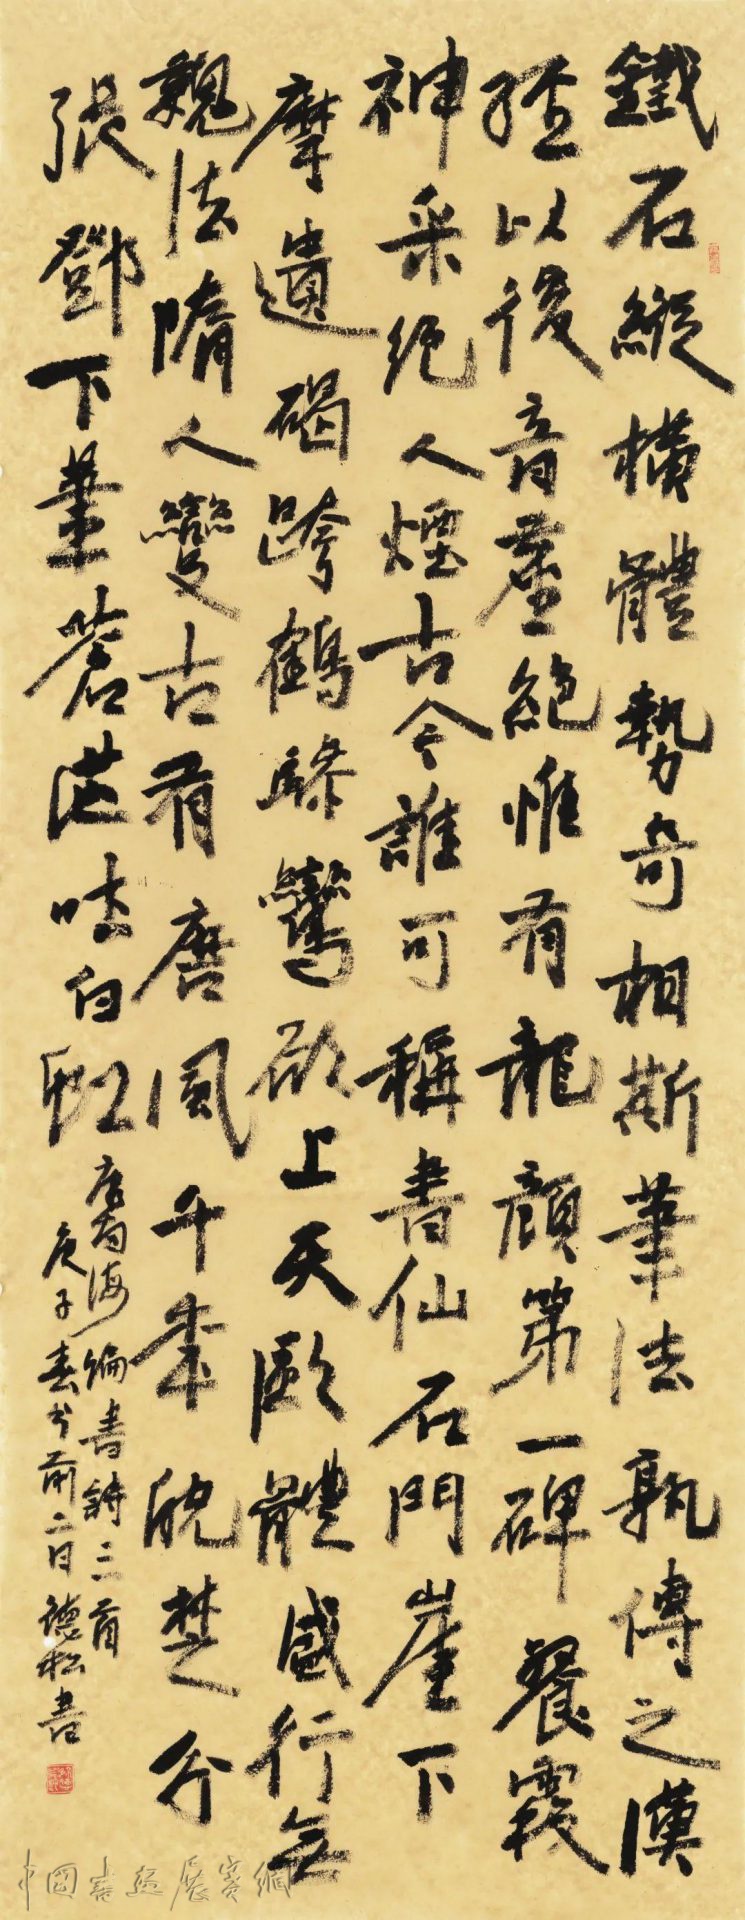 鐵石縱橫體勢奇相斯筆法孰傳之漢
經以後音塵絕惟有龍顏第一碑餐霞
神采絕人煙古今誰可稱書仙石門崖下
摩遺碣跨鶴驂鸞欲上天歐體盛行無
魏法隋人變古有唐風千年皖楚分
張鄧下筆蒼茫吐白虹
康南海論書詩三首
庚子春分前二日德松書
中國書畫展賽網